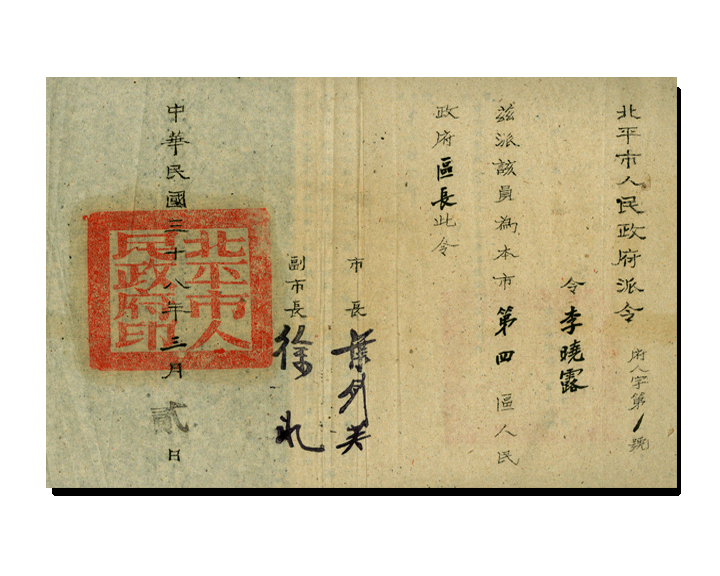 北平市人民政府派令
府人字第1號
令李曉露
茲派該員為本市第四區人民
政府區長此令
市長葉剑英
副市長徐冰
中華民國三十八年三月貳日
北平市人
民政府印